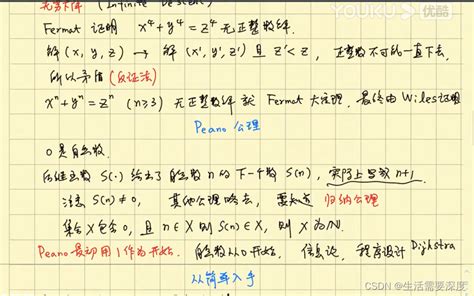 无穷下降 (Infinite Descent)
YOUKU 优酷
Fermat 证明 x⁴+y⁴=z⁴ 无正整数解.
解 (x, y, z) → 解 (x', y', z') 且 z'<z, 正整数不可能一直下去,
所以矛盾 (反证法)
xⁿ+yⁿ=zⁿ (n≥3) 无正整数解 就 Fermat 大定理, 最终由 Wiles 证明
Peano 公理
0 是自然数.
后继函数 S(·) 给出了自然数 n 的下一个数 S(n), 实际上写成 n+1.
注意 S(n)≠0, 其他公理略去, 要知道 归纳公理
集合 X 包含 0, 且 n∈X 则 S(n)∈X, 则 X 为 ℕ.
Peano 最初用 1 作为开始. 自然数从 0 开始. 信息论, 程序设计 Dijkstra
从简单入手
CSDN @生活需要深度